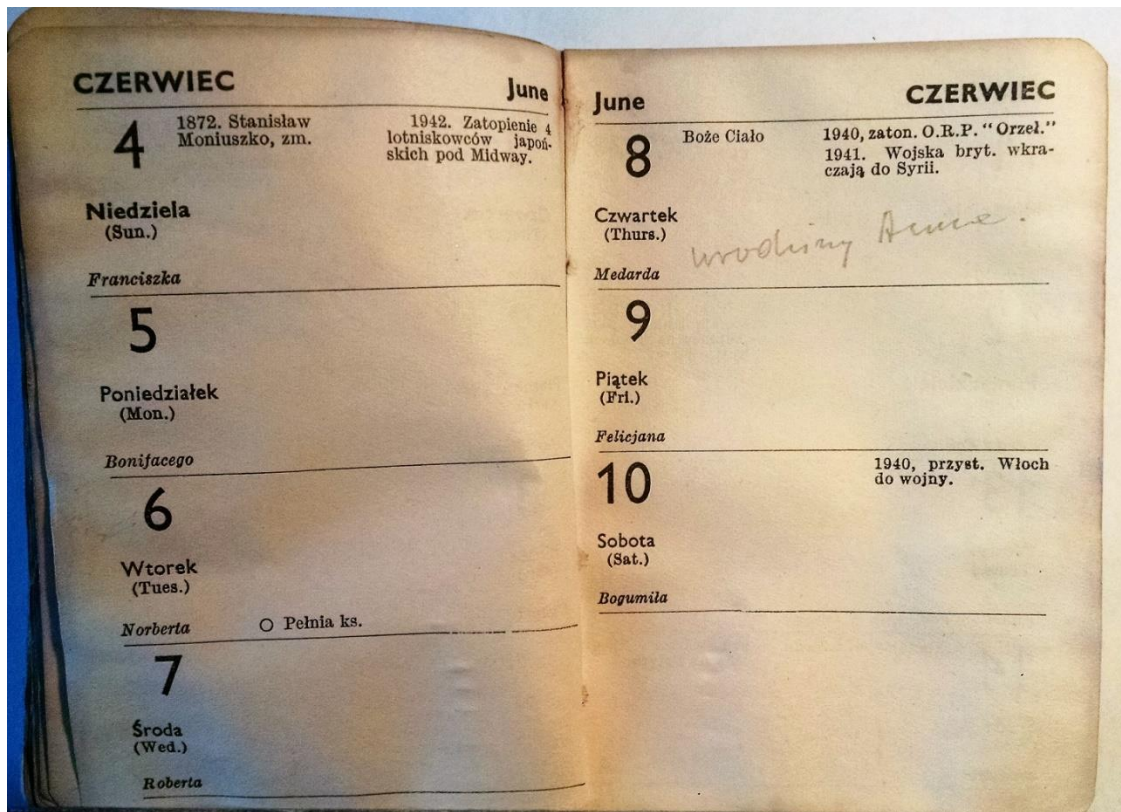 CZERWIEC June
4
1872. Stanisław
Moniuszko, zm.
1942. Zatopienie 4
lotniskowców japoń-
skich pod Midway.
Niedziela
(Sun.)
Franciszka
5
Poniedziałek
(Mon.)
Bonifacego
6
Wtorek
(Tues.)
Norberta
Pełnia ks.
7
Środa
(Wed.)
Roberta
June CZERWIEC
8
Boże Ciało
1940, zaton. O.R.P. "Orzeł."
1941. Wojska bryt. wkra-
czają do Syrii.
Czwartek
(Thurs.)
urodziny
Medarda
9
Piątek
(Fri.)
Felicjana
10
1940, przyst. Włoch
do wojny.
Sobota
(Sat.)
Bogumiła